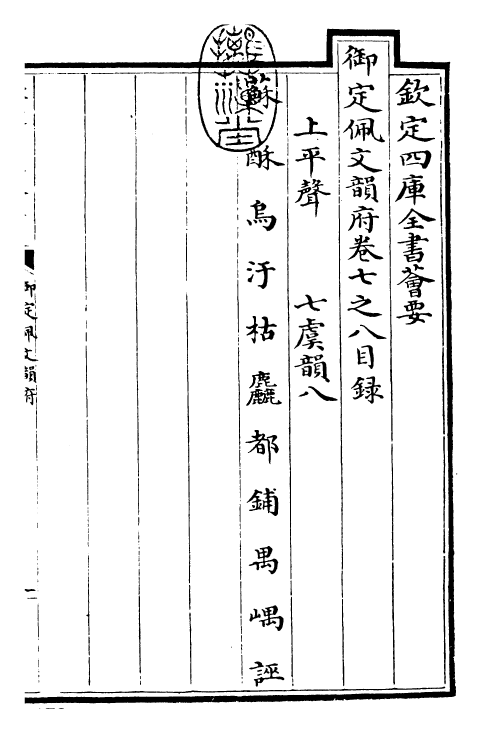 欽定四庫全書薈要
御定佩文韻府卷七之八目録
上平聲 七虞韻八
蘇 酥 烏 汙 枯 麤 都 鋪 禺 嵎 誣
御定佩文韻府